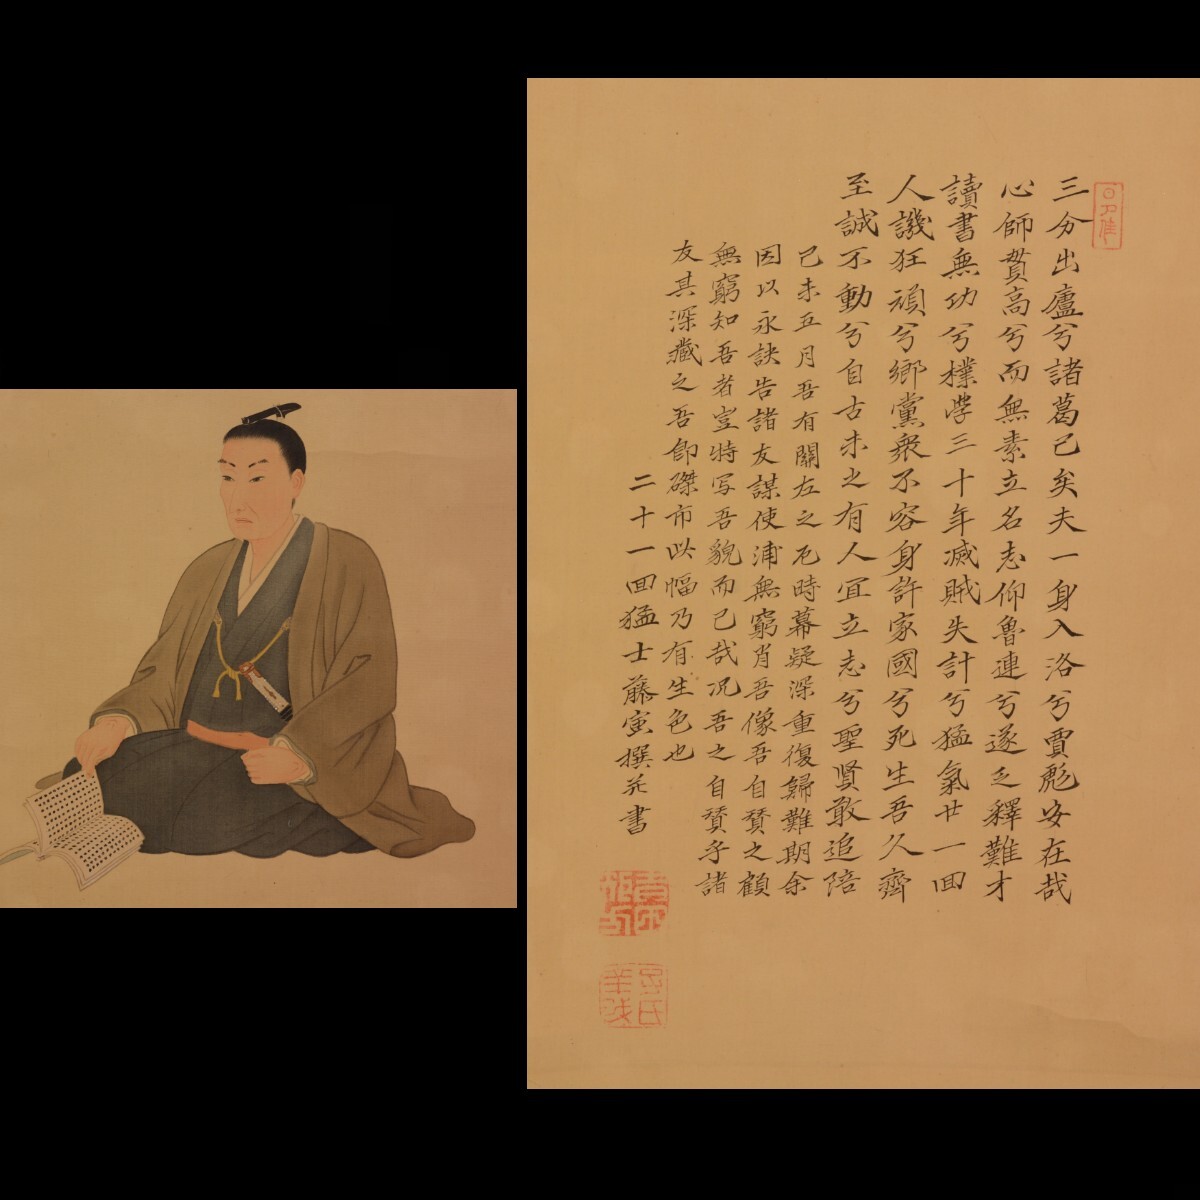 三分出廬兮諸葛已矣夫一身入洛兮賈彪安在哉
心師貫高兮而無素立名志仰魯連兮遂乏釋難才
讀書無功兮樸学三十年滅賊失計兮猛氣廿一回
人譏狂頑兮鄉黨衆不容身許家國兮死生吾久齊
至誠不動兮自古未之有人宜立志兮聖賢敢追陪
己未五月吾有關左之厄時幕疑深重復歸難期余
因以永訣告諸友謀使浦無窮肖吾像吾自賛之顧
無窮知吾者豈特写吾貌而已哉况吾之自賛乎諸
友其深藏之吾即磔市此幅乃有生色也
二十一回猛士藤寅撰并書